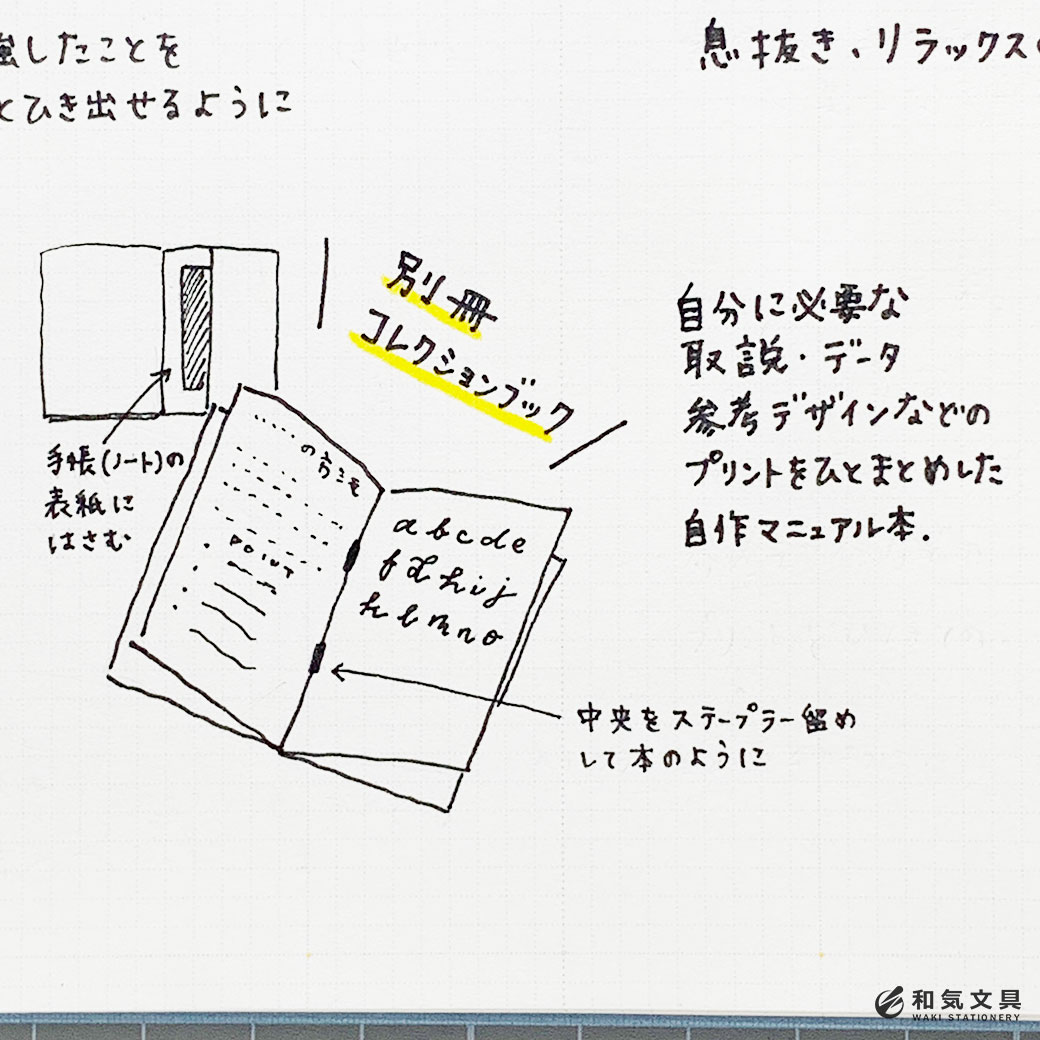 強したことを
とひき出せるように
息抜き、リラックスの
別冊
コレクションブック
自分に必要な
取説・データ
参考デザインなどの
プリントをひとまとめした
自作マニュアル本.
手帳(ノート)の
表紙に
はさむ
POINT
a b c d e
f g h i j
k l m n o
中央をステープラー留め
して本のように
和気文具
WAKI STATIONERY